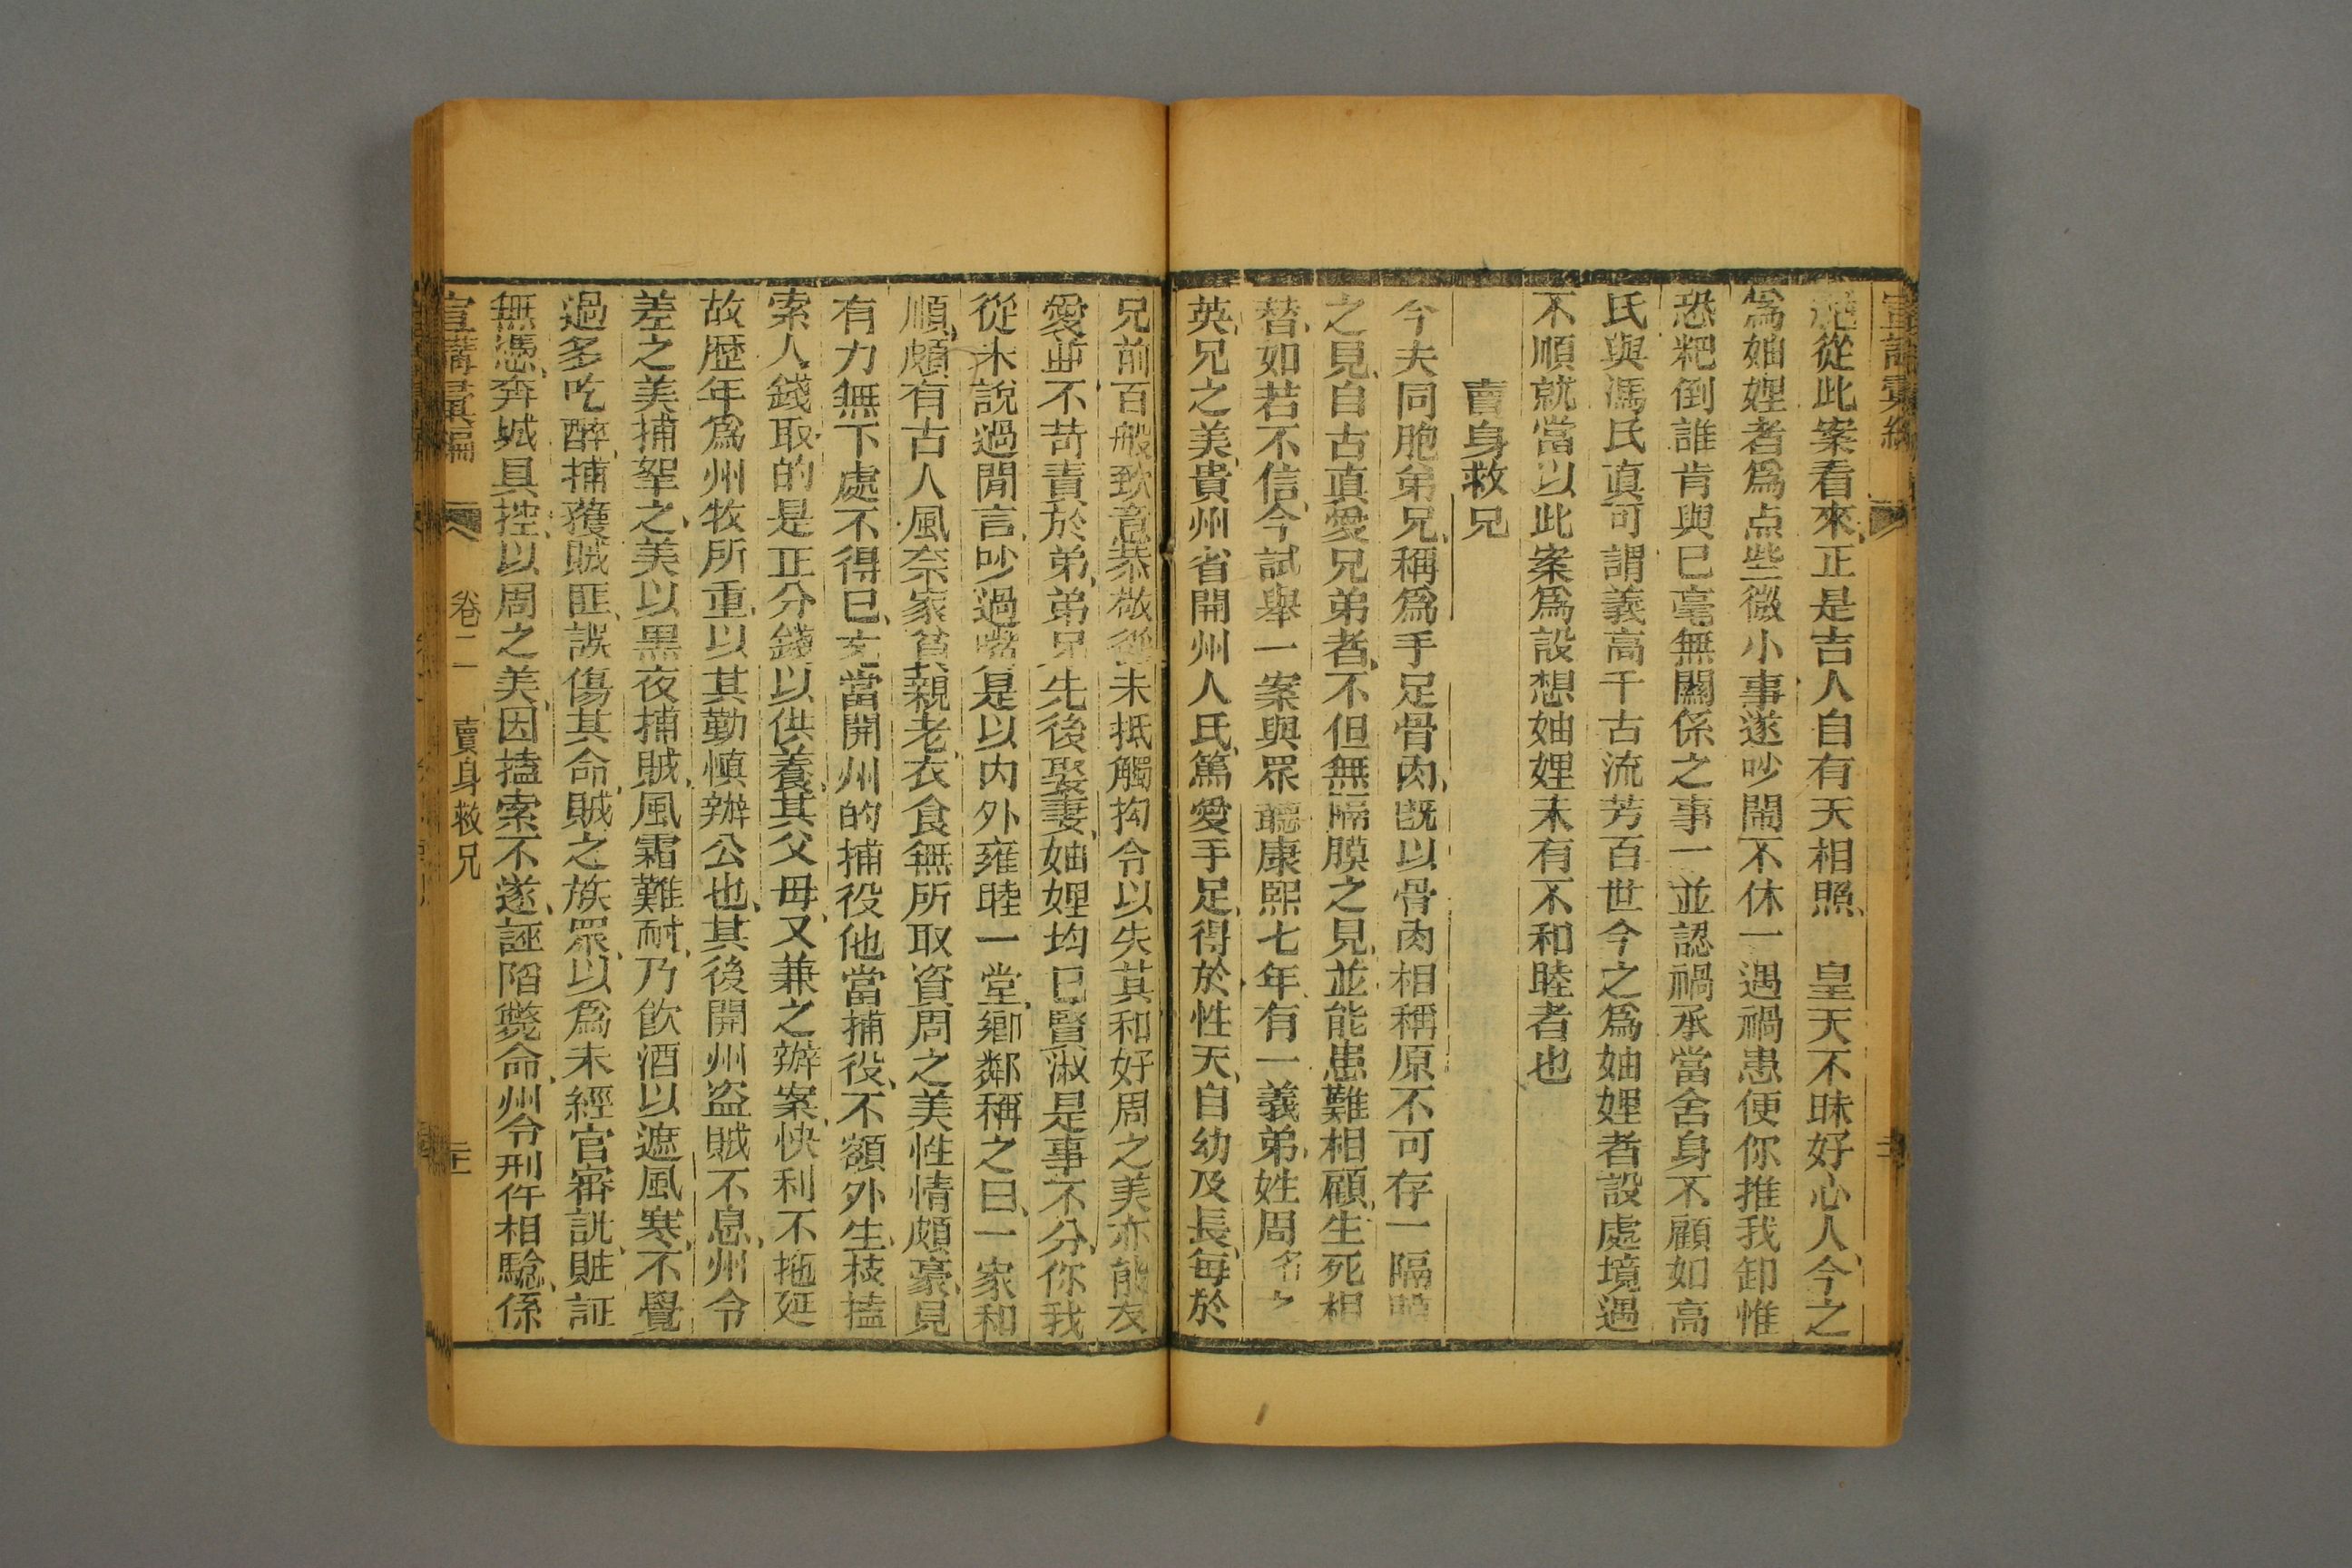 宣講彙編
從此案看來正是吉人自有天相照 皇天不昧好心人今之
為妯娌者為点些微小事遂吵鬧不休一遇禍患便你推我卸惟
恐粑倒誰肯與已毫無關係之事一並認禍承當舍身不顧如高
氏與馮氏真可謂義高千古流芳百世今之為妯娌者設處境遇
不順就當以此案為設想妯娌未有不和睦者也
賣身救兄
今夫同胞弟兄稱為手足骨肉既以骨肉相稱原不可存一隔
之見自古真愛兄弟者不但無隔膜之見並能患難相顧生死相
替如若不信今試舉一案與眾聽康熙七年有一義弟姓周名之
英兄之美貴州省開州人氏篤愛手足得於性天自幼及長每於
兄前百般致意恭敬從未抵觸拘令以失其和好周之美亦能友
愛並不苛責於弟弟兄先後娶妻妯娌均已賢淑是事不分你我
從未說過閒言吵過嘴是以內外雍睦一堂鄉鄰稱之曰一家和
順頗有古人風奈家貧親老衣食無所取資周之美性情頗豪見
有力無下處不得已充當開州的捕役他當捕役不額外生枝搕
索人錢取的是正分錢以供養其父母又兼之辦案快利不拖延
故歷年為州牧所重以其勤慎辦公也其後開州盜賊不息州令
差之美捕拏之美以黑夜捕賊風霜難耐乃飲酒以遮風寒不覺
過多吃醉捕獲賊匪誤傷其命賊之族眾以為未經官審訛賍証
無憑奔城具控以周之美因搕索不遂誣陷斃命州令刑仵相驗係
宣講彙編 卷二 賣身救兄